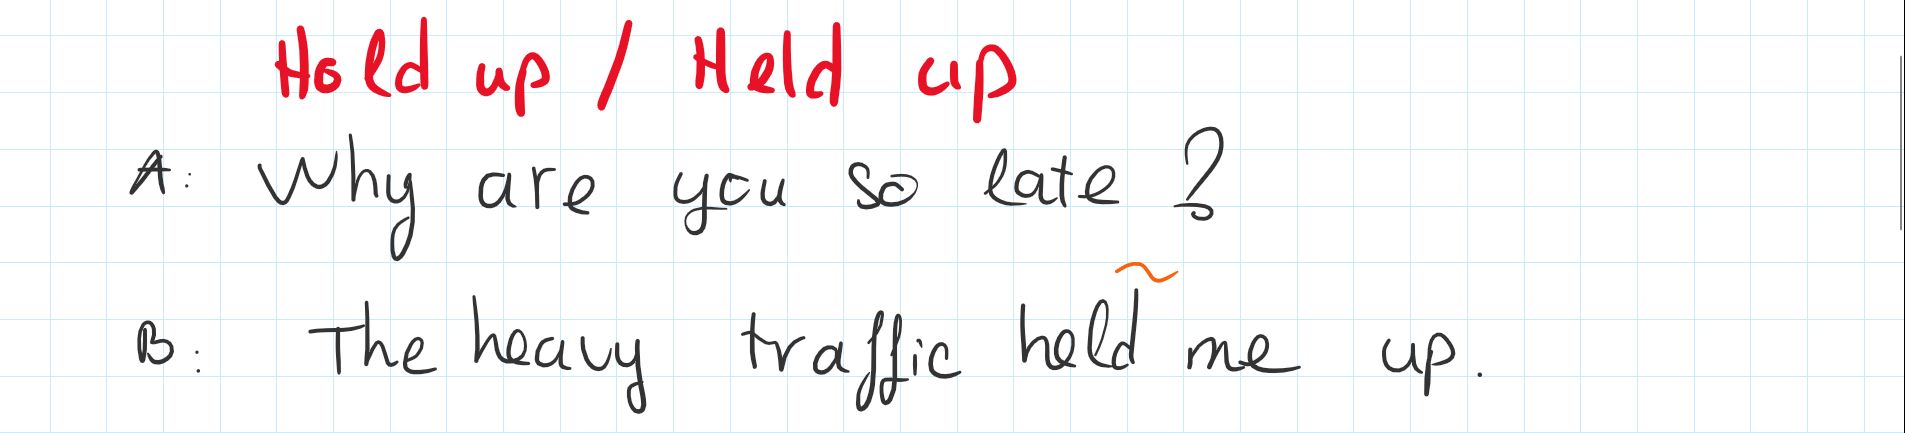 Hold up / Held up
A: Why are you so late?
B: The heavy traffic held me up.